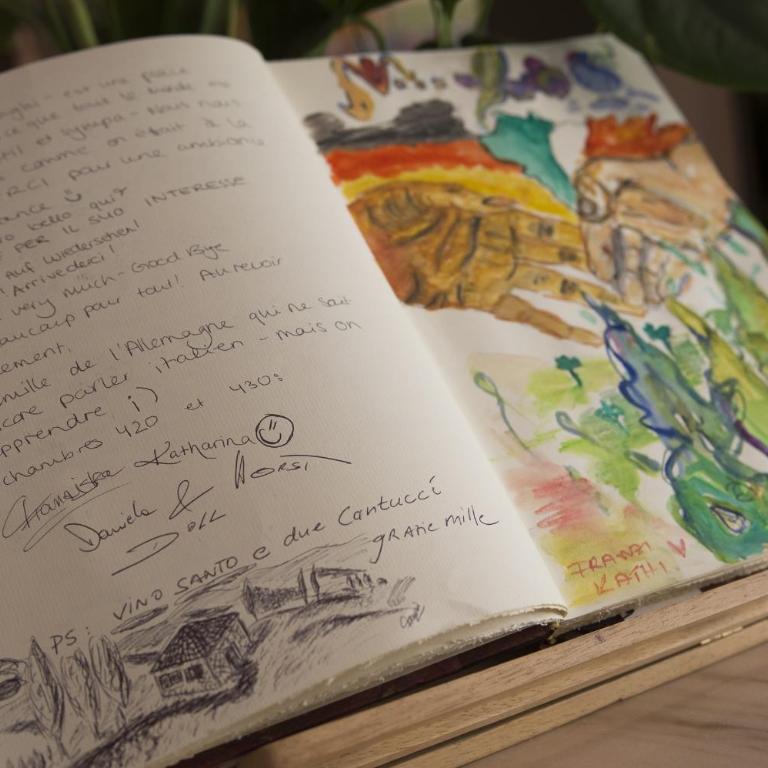 est une place
ce que tout le monde est
til et sympa - Nous nous
comme on était à la
RCI pour une ambiance
bello qui?
PER IL SUO INTERESSE
Auf Wiedersehen!
! Arrivederci!
very much - Good Bye
aucoup pour tout! Au revoir
ement,
mille de l'Allemagne qui ne sait
core parler italien - mais on
pprendre ;)
chambres 420 et 430:
Franziska Katharina
Daniela & HORST
DOLL
PS: VINO SANTO e due Cantucci
gRAZIE mille
FRANZI
KATHI